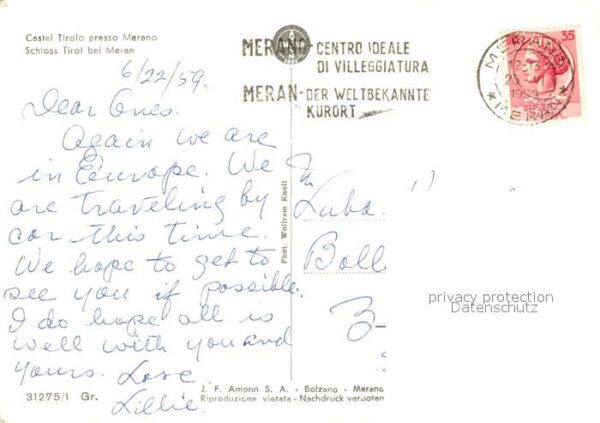 Castel Tirolo presso Merano
Schloss Tirol bei Meran
6/22/59.
Dear Ones.
Again we are
in Europe. We
are traveling by
car this time.
We hope to get to
see you if possible.
I do hope all is
well with you and
yours. Love
Lillie.
31275/I Gr.
Phot. Wolfram Knoll
J. F. Amonn S. A. - Bolzano - Merano
Riproduzione vietata - Nachdruck verboten
MERANO - CENTRO IDEALE
DI VILLEGGIATURA
MERAN - DER WELTBEKANNTE
KURORT
35
MERANO
1959
MERAN
Luba
Boll
3-
privacy protection
Datenschutz